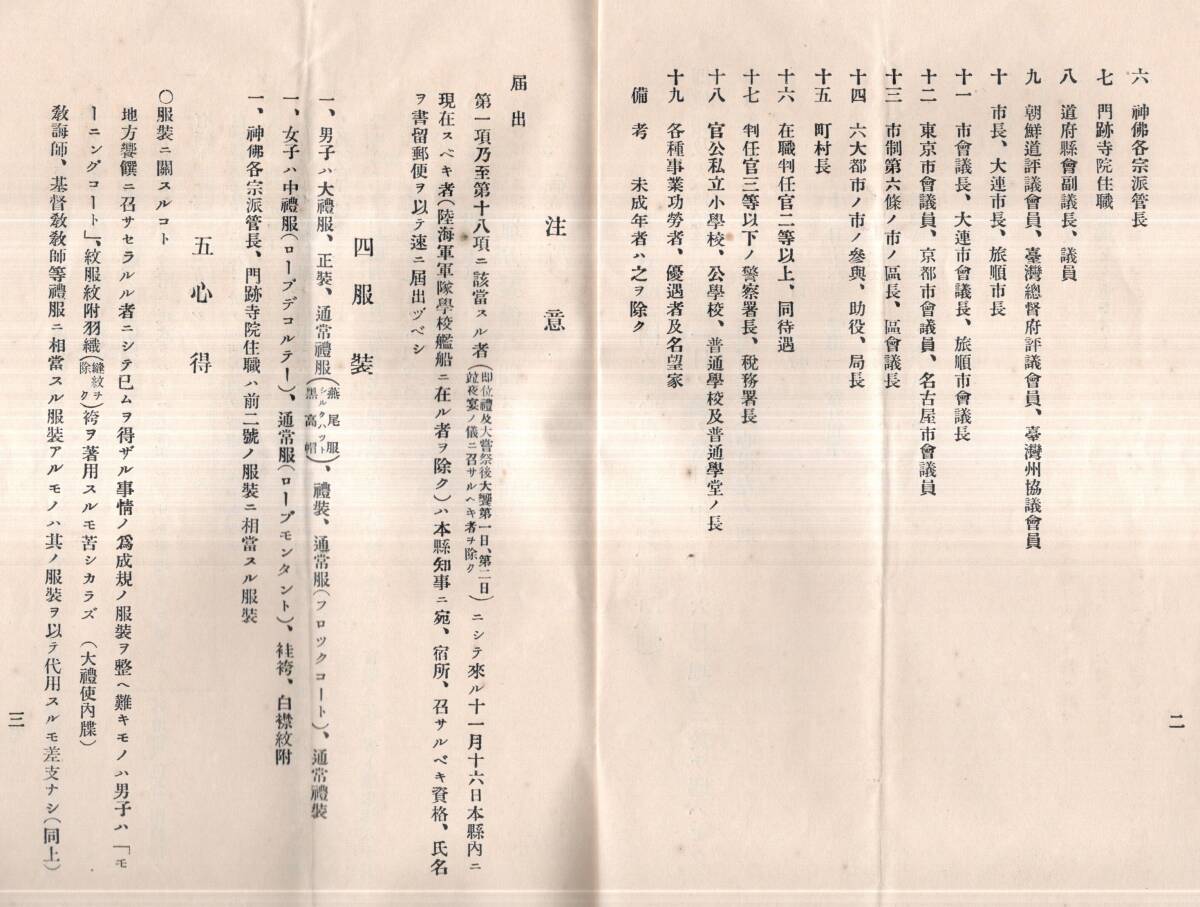 六　神佛各宗派管長
七　門跡寺院住職
八　道府縣會副議長、議員
九　朝鮮道評議會員、臺灣總督府評議會員、臺灣州協議會員
十　市長、大連市長、旅順市長
十一　市會議長、大連市會議長、旅順市會議長
十二　東京市會議員、京都市會議員、名古屋市會議員
十三　市制第六條ノ市ノ區長、區會議長
十四　六大都市ノ市ノ參與、助役、局長
十五　町村長
十六　在職判任官二等以上、同待遇
十七　判任官三等以下ノ警察署長、稅務署長
十八　官公私立小學校、公學校、普通學校及普通學堂ノ長
十九　各種事業功勞者、優遇者及名望家
備考　未成年者ハ之ヲ除ク
二
注意
届出
第一項乃至第十八項ニ該當スル者(卽位禮及大嘗祭後大饗第一日、第二日竝夜宴ノ儀ニ召サルヘキ者ヲ除ク)ニシテ來ル十一月十六日本縣內ニ
現在スベキ者(陸海軍軍隊學校艦船ニ在ル者ヲ除ク)ハ本縣知事ニ宛、宿所、召サルベキ資格、氏名
ヲ書留郵便ヲ以テ速ニ届出ヅベシ
四服裝
一、男子ハ大禮服、正裝、通常禮服(燕尾服シルクハット黑高帽)、禮裝、通常服(フロツクコート)、通常禮裝
一、女子ハ中禮服(ローブデコルテー)、通常服(ローブモンタント)、袿袴、白襟紋附
一、神佛各宗派管長、門跡寺院住職ハ前二號ノ服裝ニ相當スル服裝
五心得
〇服裝ニ關スルコト
地方饗饌ニ召サセラルル者ニシテ已ムヲ得ザル事情ノ爲成規ノ服裝ヲ整ヘ難キモノハ男子ハ「モ
ーニングコート」、紋服紋附羽織(縫紋ヲ除ク)袴ヲ著用スルモ苦シカラズ　(大禮使內牒)
敎誨師、基督敎敎師等禮服ニ相當スル服裝アルモノハ其ノ服裝ヲ以テ代用スルモ差支ナシ(同上)
三